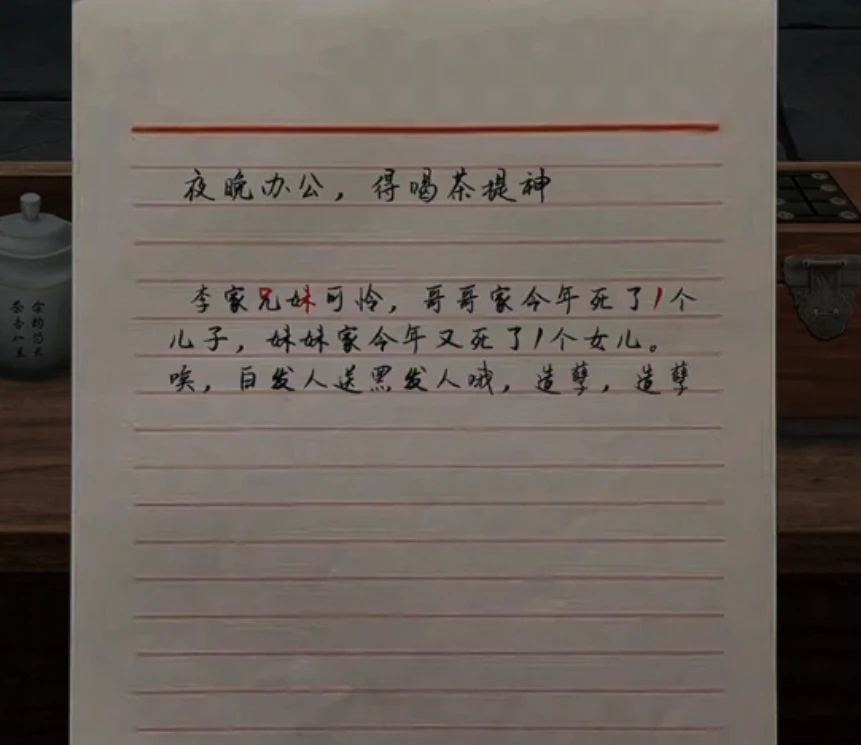 夜晚办公，得喝茶提神
李家兄妹可怜，哥哥家今年死了1个
儿子，妹妹家今年又死了1个女儿。
唉，白发人送黑发人哦，造孽，造孽